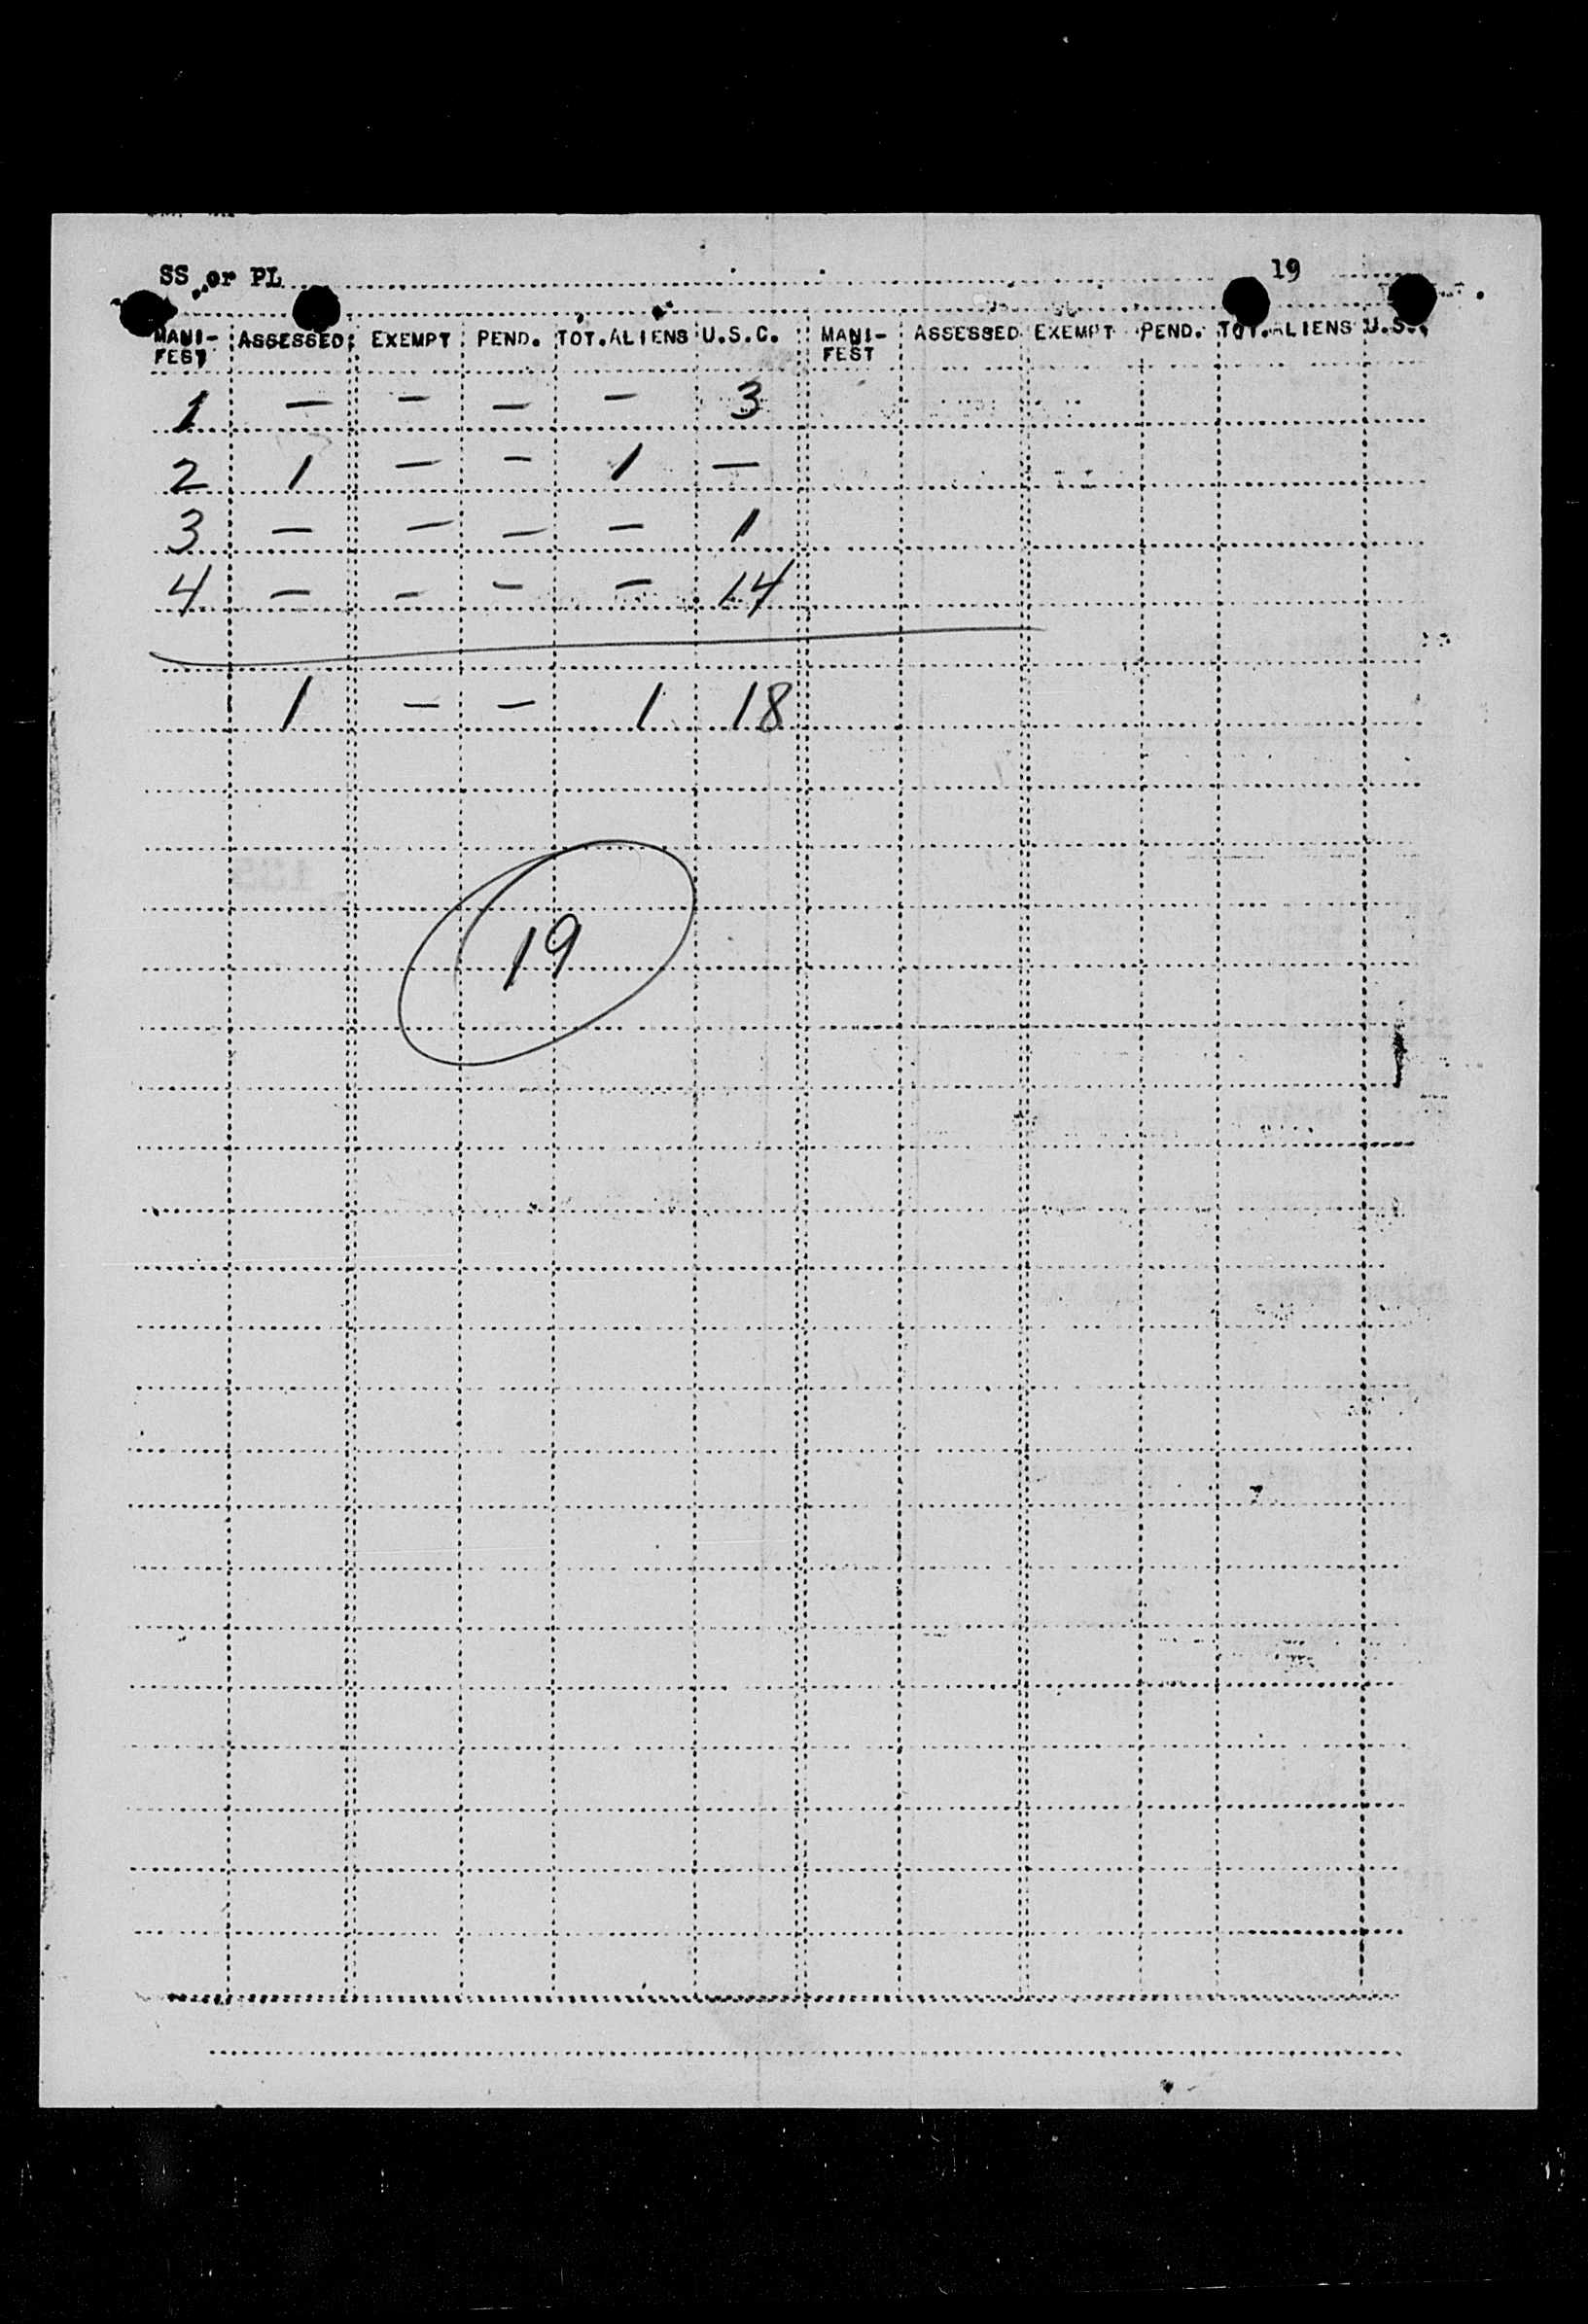 SS or PL 19
MANI-FEST ASSESSED EXEMPT PEND. TOT.ALIENS U.S.C. MANI-FEST ASSESSED EXEMPT PEND. TOT.ALIENS U.S.
1 — — — — 3
2 1 — — 1 —
3 — — — — 1
4 — — — — 14
1 — — 1 18
19